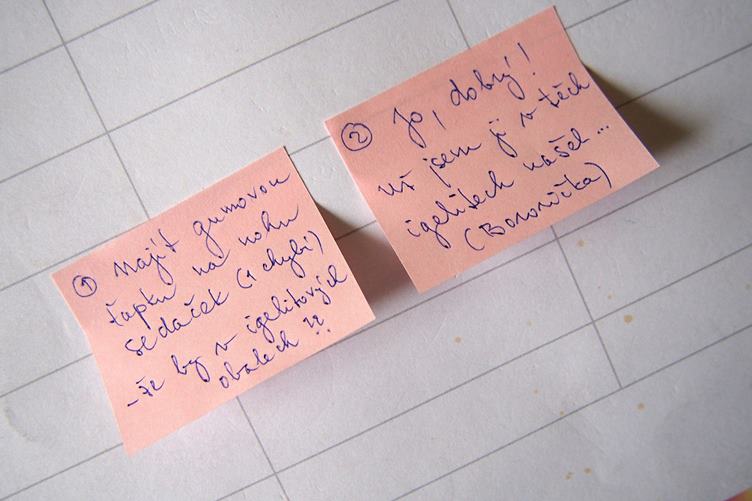 ① Najít gumovou
ťapku na nohu
sedaček (1 chybí)
- že by v igelitových
obalech ??
② Jo, dobrý!
už jsem ji v těch
igelitech našel...
(Borovička)